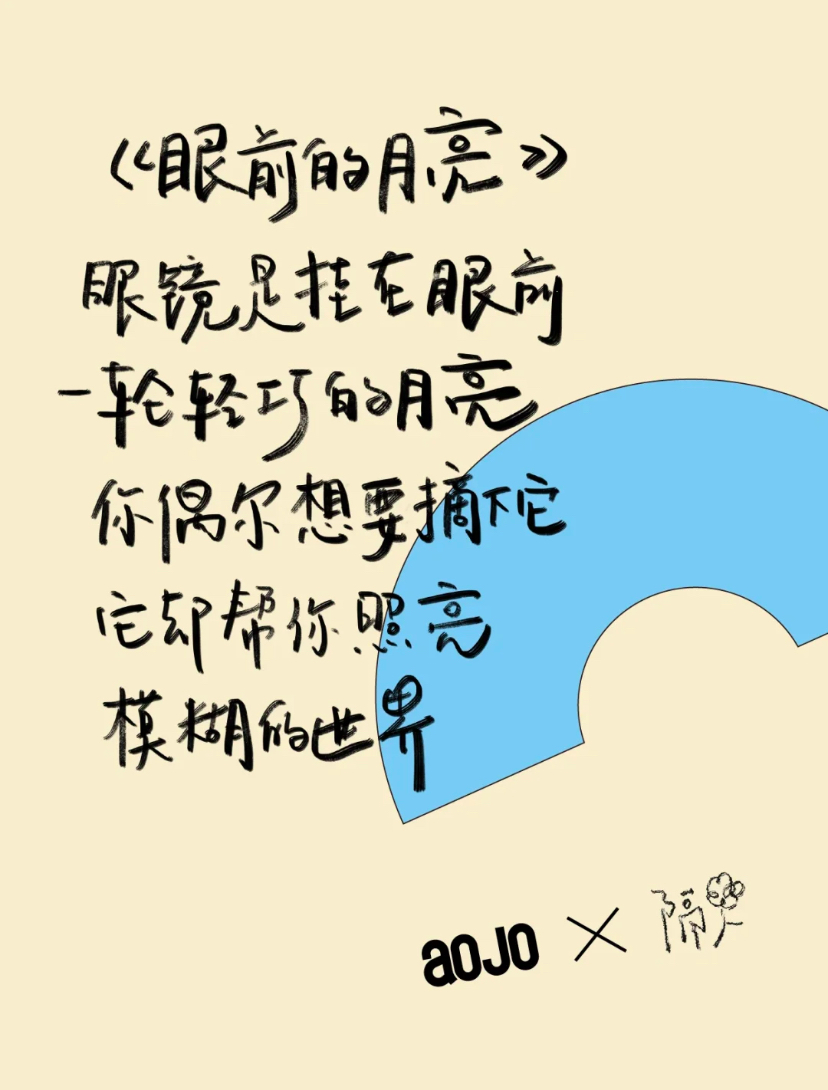 《眼前的月亮》
眼镜是挂在眼前
一轮轻巧的月亮
你偶尔想要摘下它
它却帮你照亮
模糊的世界
aoJo × 隔花人